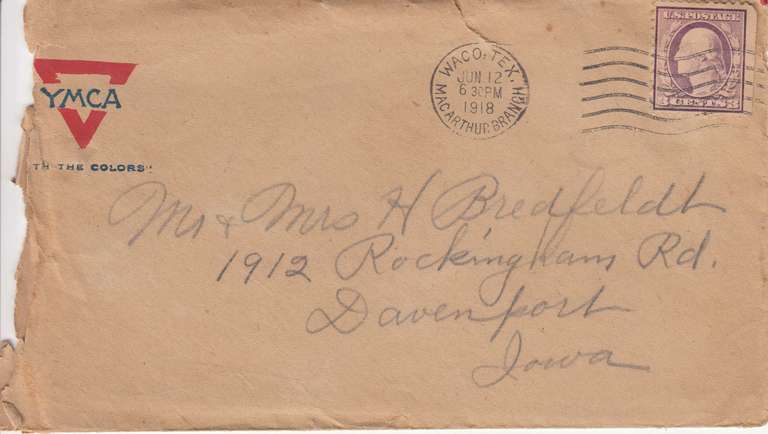 YMCA
TH THE COLORS"
WACO, TEX.
JUN 12
6 30 PM
1918
MACARTHUR BRANCH
U.S. POSTAGE
3 CENTS 3
Mr & Mrs H Bredfeldt
1912 Rockingham Rd.
Davenport
Iowa